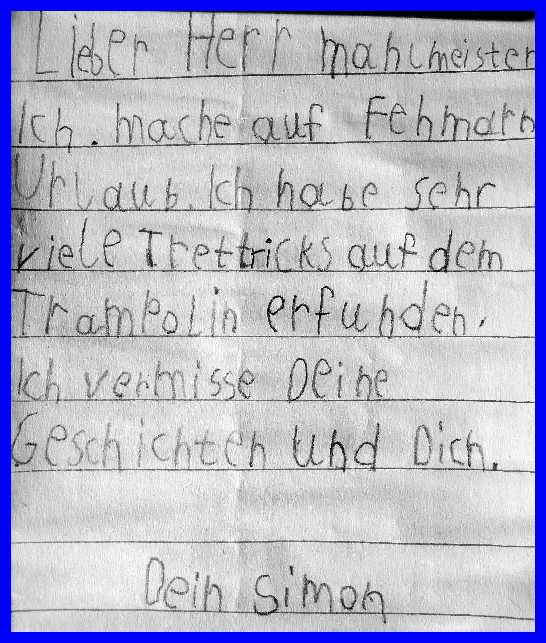 Lieber Herr mahlmeister
Ich. mache auf Fehmarn
Urlaub. Ich habe sehr
viele Trettricks auf dem
Trampolin erfunden.
Ich vermisse Deine
Geschichten und Dich.
Dein Simon